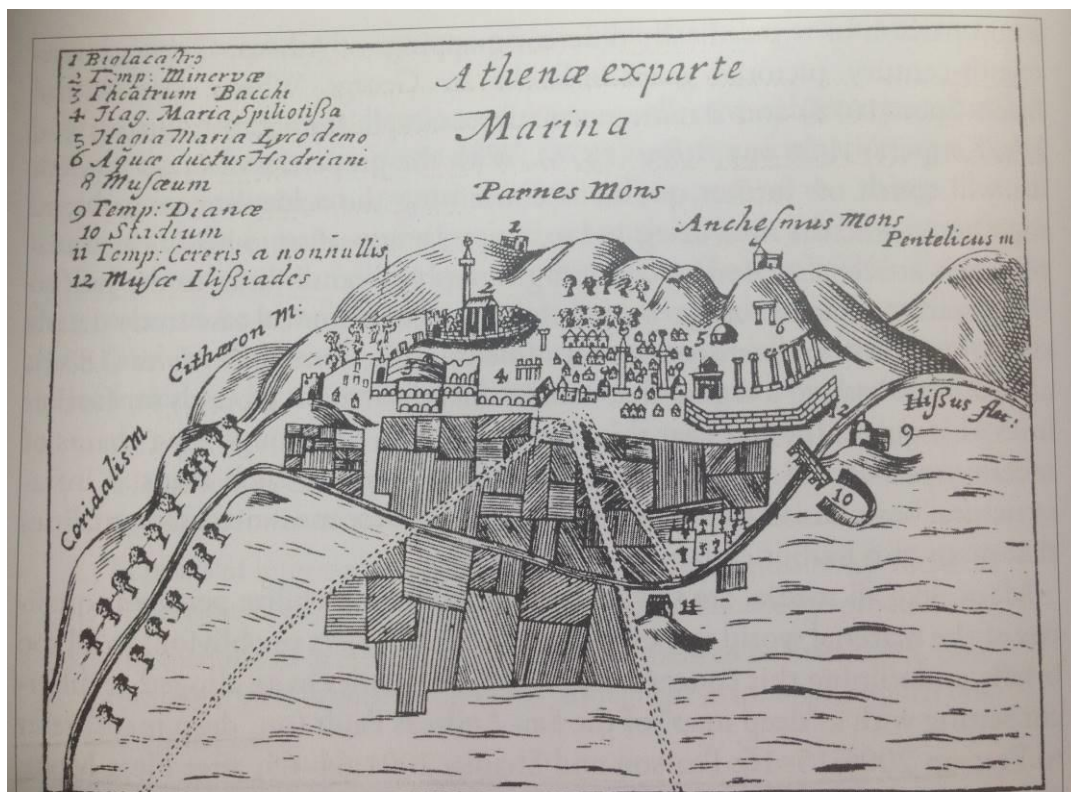 1 Biglaca ſtro
2 Temp: Minervæ
3 Theatrum Bacchi
4 Hag. Maria Spiliotiſsa
5 Hagia Maria Lycodemo
6 Aquæ ductus Hadriani
8 Muſæum
9 Temp: Dianæ
10 Stadium
11 Temp: Cereris a nonnullis
12 Muſæ Iliſsiades
Athenæ exparte
Marina
Parnes Mons
Ancheſmus Mons
Pentelicus m
1
2
6
Cithæron M:
5
3
4
12
Iliſsus flu:
9
Coridalis M
10
11